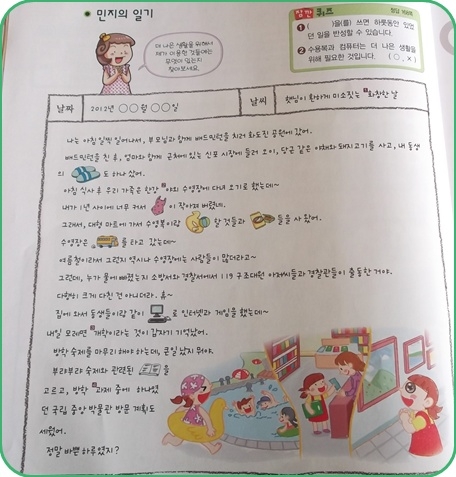 민지의 일기
더 나은 생활을 위해서
제가 이용한 것들에는
무엇이 있는지
찾아보세요.
깜짝 퀴즈
1 ( )을(를) 쓰면 하룻동안 있었
던 일을 반성할 수 있습니다.
2 수영복과 컴퓨터는 더 나은 생활을
위해 필요한 것입니다. ( ○, × )
날짜 2012년 ○○월 ○○일 날씨 햇님이 환하게 미소짓는 화창한 날
나는 아침 일찍 일어나서, 부모님과 함께 배드민턴을 치러 화도진 공원에 갔어.
배드민턴을 친 후, 엄마와 함께 근처에 있는 신포 시장에 들러 오이, 당근 같은 야채와 돼지고기를 사고, 내 동생
의 도 하나 샀어.
아침 식사 후 우리 가족은 한강 야외 수영장에 다녀 오기로 했는데~
내가 1년 사이에 너무 커서 이 작아져 버렸네.
그래서, 대형 마트에 가서 수영복이랑 할 것들과 들을 사 왔어.
수영장은 를 타고 갔는데~
여름철이라서 그런지 역시나 수영장에는 사람들이 많더라고~
그런데, 누가 물에 빠졌는지 소방서와 경찰서에서 119 구조대원 아저씨들과 경찰관들이 출동한 거야.
다행히 크게 다친 건 아니더라. 휴~
집에 와서 동생들이랑 같이 로 인터넷과 게임을 했는데~
내일 모레면 개학이라는 것이 갑자기 기억났어.
방학 숙제를 마무리해야 하는데, 큰일 났지 뭐야.
부랴부랴 숙제와 관련된
고르고, 방학 과제 중에 하나였
던 국립 중앙 박물관 방문 계획도
세웠어.
정말 바쁜 하루였지?